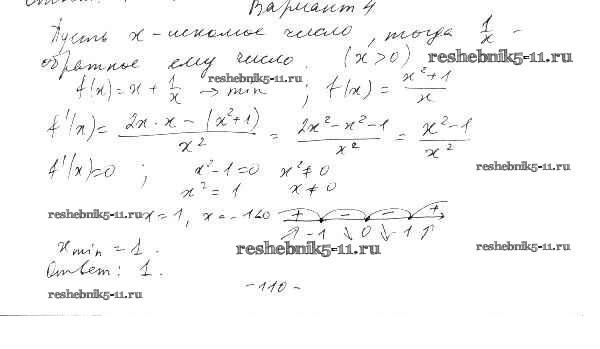 Вариант 4
Пусть x - искомое число, тогда 1/x -
обратное ему число. (x>0) reshebnik5-11.ru
reshebnik5-11.ru
f(x) = x + 1/x → min ; f(x) = (x²+1)/x
f'(x) = (2x·x - (x²+1))/x² = (2x²-x²-1)/x² = (x²-1)/x²
f'(x)=0 ; x²-1=0 x²≠0 reshebnik5-11.ru
x²=1 x≠0
reshebnik5-11.ru x=1, x=-1<0 + - - +
-1 0 1
x min = 1. reshebnik5-11.ru reshebnik5-11.ru
Ответ: 1.
reshebnik5-11.ru -110-